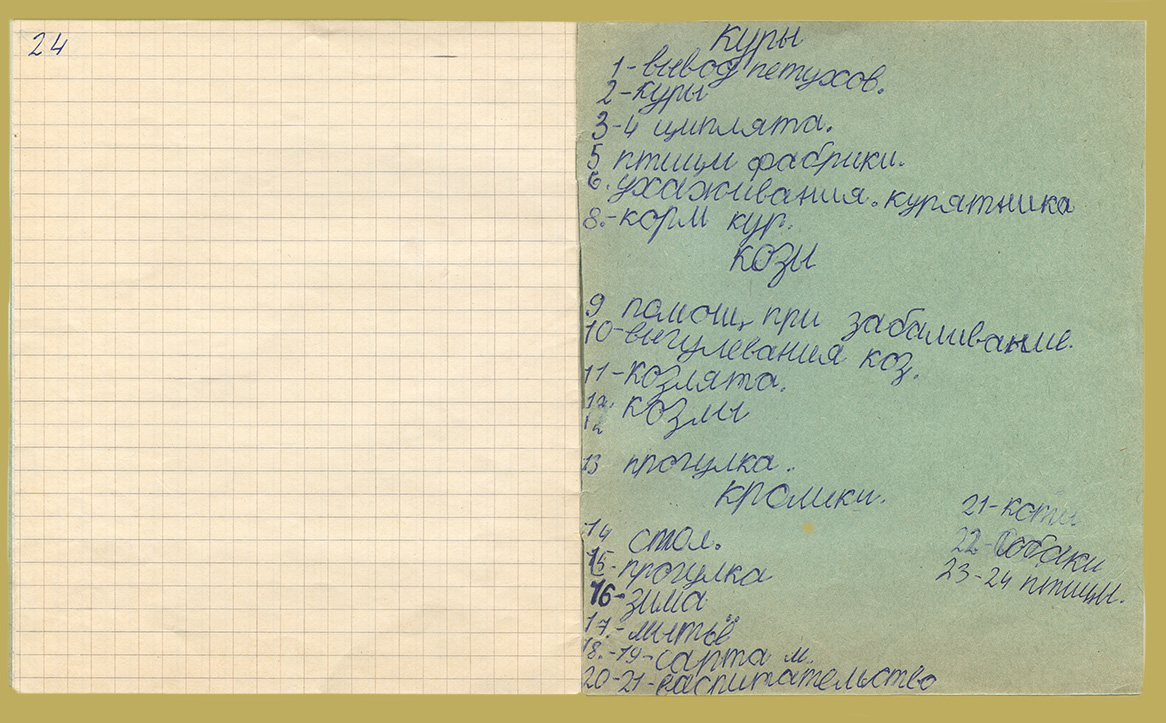 24
Куры
1-вывод петухов.
2-Куры
3-4 циплята.
5 птицы фабрики.
6. ухаживания. курятника
8.-корм кур.
КОЗЫ
9 помощ, при забаливание.
10-выгулевания коз.
11-козлята.
12. козлы
12
13 прогулка.
Кролики.
14 стол.
15-прогулка
16-зима
17.-литьё
18.-19-сарта м.
20-21-васпитательство
21-коты
22-Собаки
23-24 птицы.